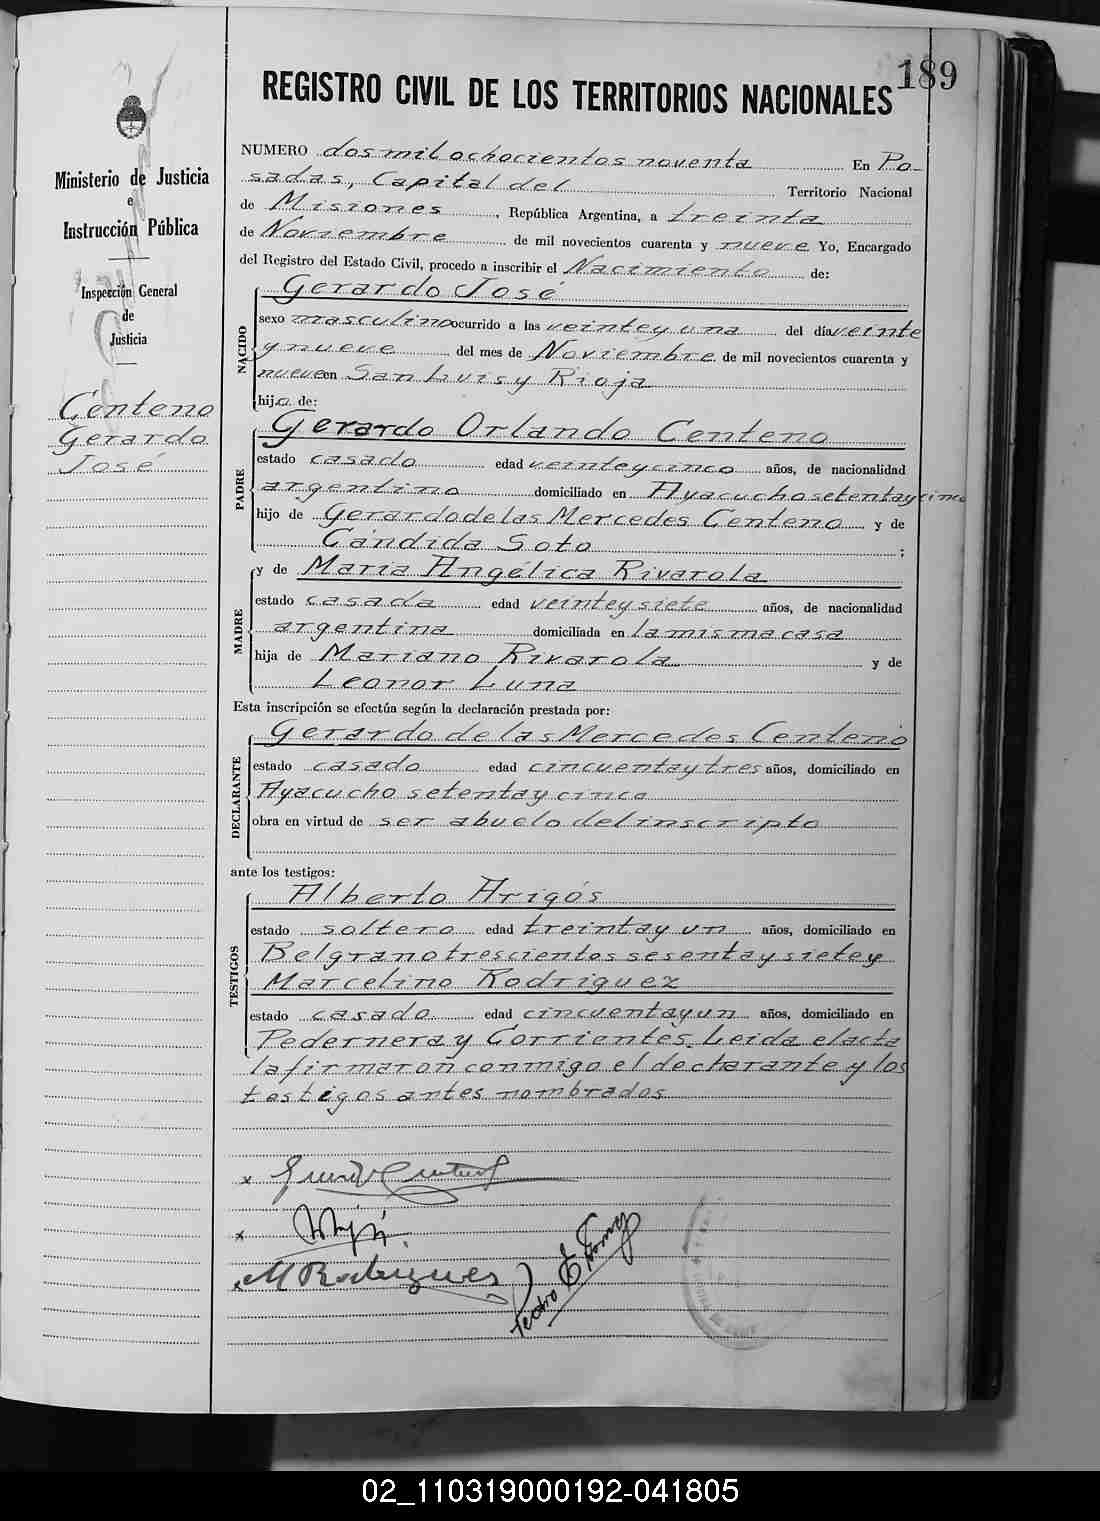 189
REGISTRO CIVIL DE LOS TERRITORIOS NACIONALES
Ministerio de Justicia
e
Instrucción Pública
Inspección General
de
Justicia
Centeno
Gerardo
José
NUMERO dos mil ochocientos noventa En Po-
sadas, Capital del Territorio Nacional
de Misiones, República Argentina, a treinta
de Noviembre de mil novecientos cuarenta y nueve Yo, Encargado
del Registro del Estado Civil, procedo a inscribir el Nacimiento de:
NACIDO
Gerardo José
sexo masculino ocurrido a las veinte y una del día veinte
y nueve del mes de Noviembre de mil novecientos cuarenta y
nueve en San Luis y Rioja
hijo de:
PADRE
Gerardo Orlando Centeno
estado casado edad veinte y cinco años, de nacionalidad
argentino domiciliado en Ayacucho setenta y cinco
hijo de Gerardo de las Mercedes Centeno y de
Cándida Soto ;
MADRE
y de María Angélica Rivarola
estado casada edad veinte y siete años, de nacionalidad
argentina domiciliada en la misma casa
hija de Mariano Rivarola y de
Leonor Luna
Esta inscripción se efectúa según la declaración prestada por:
DECLARANTE
Gerardo de las Mercedes Centeno
estado casado edad cincuenta y tres años, domiciliado en
Ayacucho setenta y cinco
obra en virtud de ser abuelo del inscripto
ante los testigos:
TESTIGOS
Alberto Arigós
estado soltero edad treinta y un años, domiciliado en
Belgrano trescientos sesenta y siete y
Marcelino Rodriguez
estado casado edad cincuenta y un años, domiciliado en
Pedernera y Corrientes. Leida el acta
la firmaron conmigo el declarante y los
testigos antes nombrados
M Rodriguez
Pedro E
02_110319000192-041805